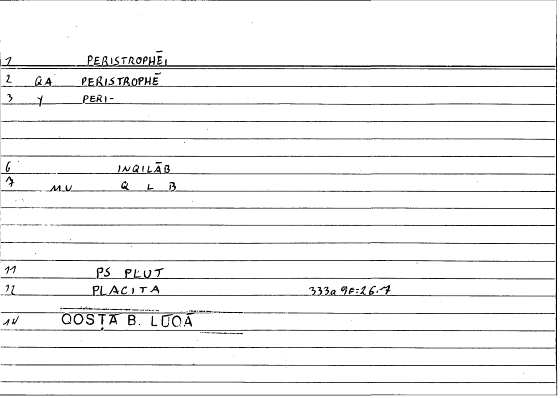 1 PERISTROPHĒI
2 QA PERISTROPHĒ
3 Y PERI-
6 INQILĀB
7 MU Q L B
11 PS PLUT
12 PLACITA 333a9F=26.7
14 QOSṬĀ B. LŪQĀ